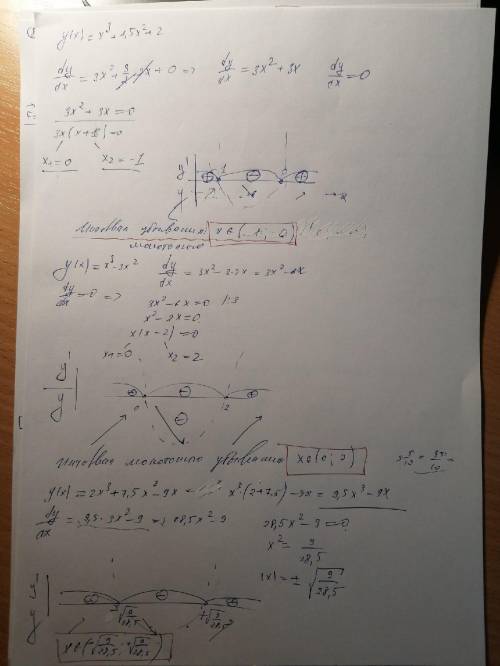 y(x) = x³ + 1,5x² + 2
dy/dx = 3x² + 3/2 · 2x + 0 => dy/dx = 3x² + 3x dy/dx = 0
3x² + 3x = 0
3x(x+1) = 0
x₁ = 0 x₂ = -1
y' ⊕ -1 ⊖ 0 ⊕
y x
Интервал убывания: x ∈ (-1; 0)
монотонного
y(x) = x³ - 3x² dy/dx = 3x² - 3·2x = 3x² - 6x
dy/dx = 0 => 3x² - 6x = 0 | :3
x² - 2x = 0
x(x - 2) = 0
x₁ = 0 x₂ = 2
y' ⊕ ⊖ ⊕
y 0 2
⊖
Интервал монотонного убывания: x ∈ (0; 2)
y(x) = 2x³ + 7,5x² - 9x x³·(2+7,5) - 9x = 9,5x³ - 9x
dy/dx = 9,5 · 3x² - 9 = 28,5x² - 9 28,5x² - 9 = 0
x² = 9/28,5
|x| = ± √(9/28,5)
y' ⊕ ⊖ ⊕
y -√(9/28,5) +√(9/28,5)
x ∈ (-√(9/28,5); +√(9/28,5))